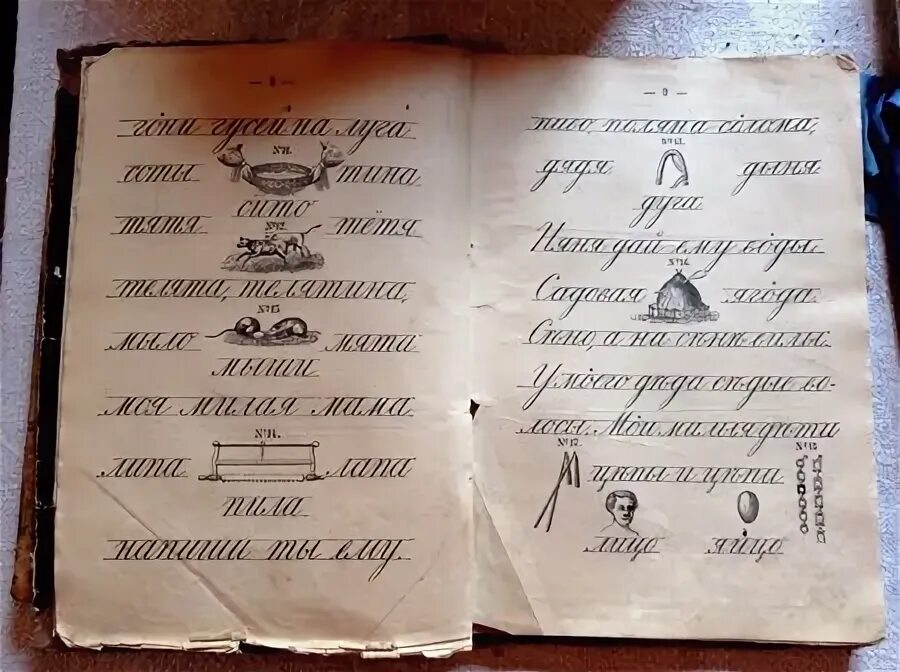 гони гусей на луга
№ 11.
соты тина
сито
№ 12.
тятя тётя
телята, телятина,
№ 13
мыло мята
мыши
моя милая мама.
№ 14.
липа лапа
пила
напиши ты ему.
— 9 —
пиво, поляна солома,
№ 15.
дядя дыня
дуга
Няня дай ему воды.
№ 16.
Садовая ягода
Сѣно, а на сѣнѣ вилы.
У моего дѣда сѣдые во-
лосы. Мои милыя дѣти
№ 17. № 18
цѣпы и цѣпи
лицо яйцо